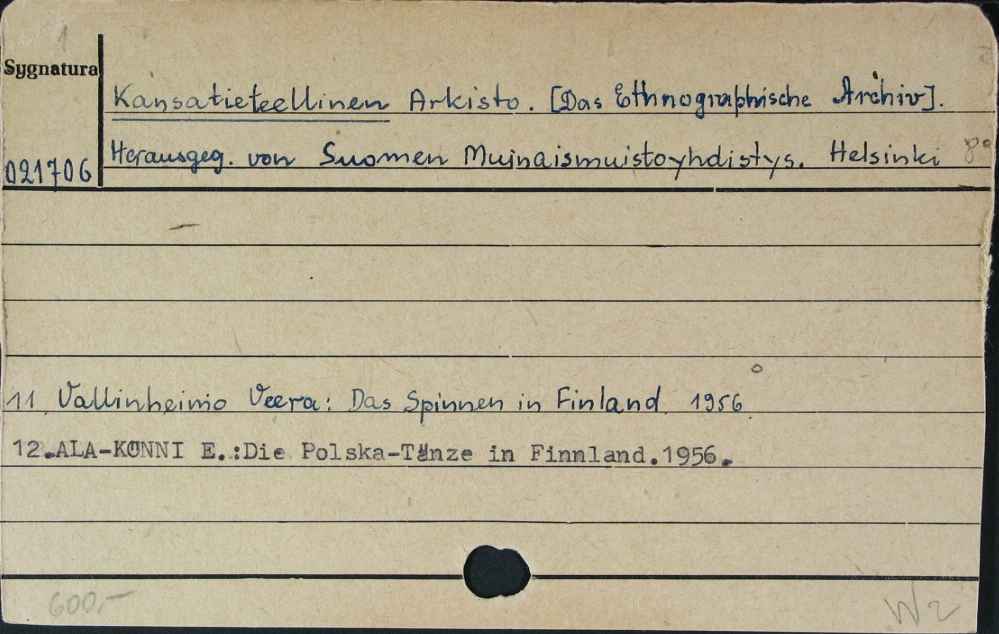 1
Sygnatura
Kansatieteellinen Arkisto. [Das Ethnographische Archiv].
021706
Herausgeg. von Suomen Muinaismuistoyhdistys. Helsinki 8°
11 Vallinheimo Veera: Das Spinnen in Finland 1956
12.ALA-KÖNNI E.:Die Polska-Tänze in Finnland.1956.
600,-
W2